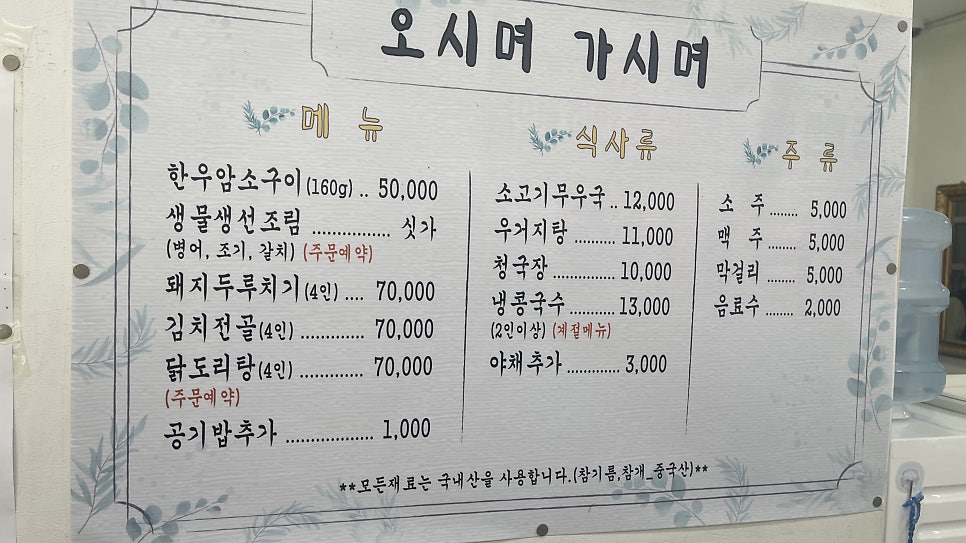 오시며 가시며
메 뉴
한우암소구이(160g) .. 50,000
생물생선조림 ................ 싯가
(병어, 조기, 갈치) (주문예약)
돼지두루치기(4인) .... 70,000
김치전골(4인) ............. 70,000
닭도리탕(4인) ............. 70,000
(주문예약)
공기밥추가 .................. 1,000
식사류
소고기무우국 .. 12,000
우거지탕 .......... 11,000
청국장 ............... 10,000
냉콩국수 ............ 13,000
(2인이상) (계절메뉴)
야채추가 ............. 3,000
주 류
소 주 ........ 5,000
맥 주 ........ 5,000
막걸리 ........ 5,000
음료수 ........ 2,000
**모든재료는 국내산을 사용합니다.(참기름,참개_중국산)**